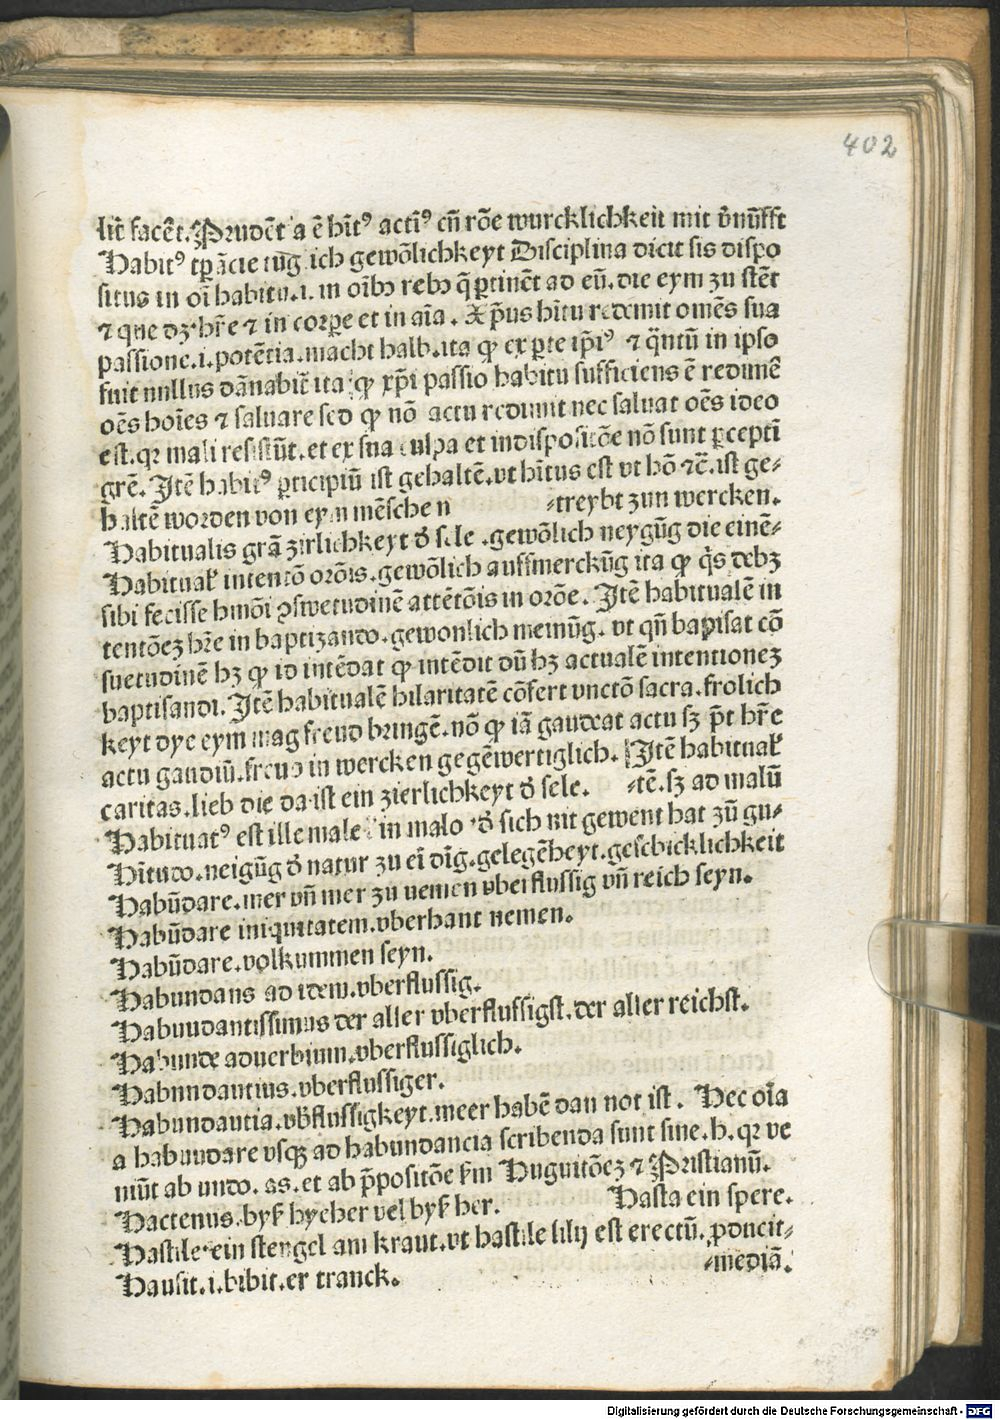 402
lit̄ facēt. Prudēt a ē hīt⁹ actī⁹ cū rōe wurcklichkeit mit v̄nūfft
Habit⁹ tꝑācie tūg ich gewōlichkeyt Disciplina dicit sis dispo
situs in oī habitu.i. in oībꝫ rebꝫ q̄ ꝑtinēt ad eū. die eym zu stēt
⁊ que dꝫ hr̄e ⁊ in corꝑe et in aīa. Xp̄us hītu redemit omēs sua
passione.i.potētia.macht halb.ita ꝙ ex ꝑte ip̄i⁹ ⁊ q̄ntū in ipso
fuit nullus dānabit̄ ita ꝙ xp̄i passio habitu sufficiens ē redimē
oēs hoīes ⁊ saluare sed ꝙ nō actu redimit nec saluat oēs ideo
est.qꝛ mali resistūt.et ex sua culpa et indispositōe nō sunt ꝑcepti
grē. Itē habit⁹ ꝑticipiū ist gehaltē.vt hītus est vt hō ⁊c̄.ist ge⸗
haltē worden von eym mēschen ⸗treybt zun wercken.
Habitualis grā zirlichkeyt d̄ sele .gewōlich neygūg die einē⸗
Habitual̄ intentō orōis.gewōlich auffmerckūg ita ꝙ q̄s debꝫ
sibi fecisse hmōi ꝯswetudinē attētōis in orōe. Itē habitualē in
tentōeꝫ hr̄e in baptizando.gewonlich meinūg. vt qn̄ baptisat cō
suetudinē hꝫ ꝙ id intēdat ꝙ intēdit dū hꝫ actualē intentioneꝫ
baptisandi. Itē habitualē hilaritatē cōfert vnctō sacra.frolich
keyt dye eym mag freud bringē.nō ꝙ iā gaudeat actu sꝫ p̄t hr̄e
actu gaudiū.freud in wercken gegēwertiglich. Itē habitual̄
caritas.lieb die da ist ein zierlichkeyt d̄ sele. ⸗tē. sꝫ ad malū
Habituat⁹ est ille male in malo d̄ sich nit gewent hat zū gu⸗
Hītudo.neigūg d̄ natur zu eī dīg.gelegēheyt.geschicklichkeit
Habūdare.mer vn̄ mer zu nemen vberflussig vn̄ reich seyn.
Habūdare iniquitatem.vberhant nemen.
Habūdare.volkummen seyn.
Habundans ad idem.vberflussig.
Habundantissimus der aller vberflussigst.der aller reichst.
Habunde aduerbium.vberflussiglich.
Habundantius.vberflussiger.
Habundantia.vb̄flussigkeyt.meer habē dan not ist. Hec oīa
a habundare vsqꝫ ad habundancia scribenda sunt sine.h.qꝛ ve
niūt ab undo. as.et ab p̄positōe km̄ Huguitōeꝫ ⁊ Pristianū.
Hactenus.byß hycher vel byß her. Hasta ein spere.
Hastile.ein stengel am kraut.vt hastile lilij est erectū.ꝓducit⸗
Hausit.i.bibit.er tranck. ⸗mediā.
Digitalisierung gefördert durch die Deutsche Forschungsgemeinschaft - DFG